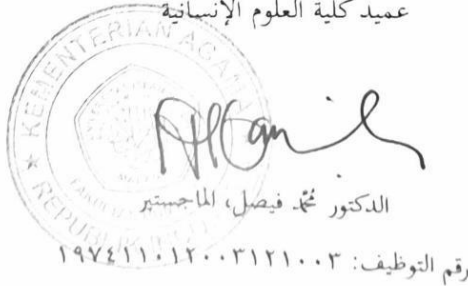 عميد كلية العلوم الإنسانية
KEMENTERIAN AGAMA
REPUBLIK
الدكتور محمد فيصل، الماجستير
رقم التوظيف: ١٩٧٤١١٠١٢٠٠٣١٢١٠٠٣